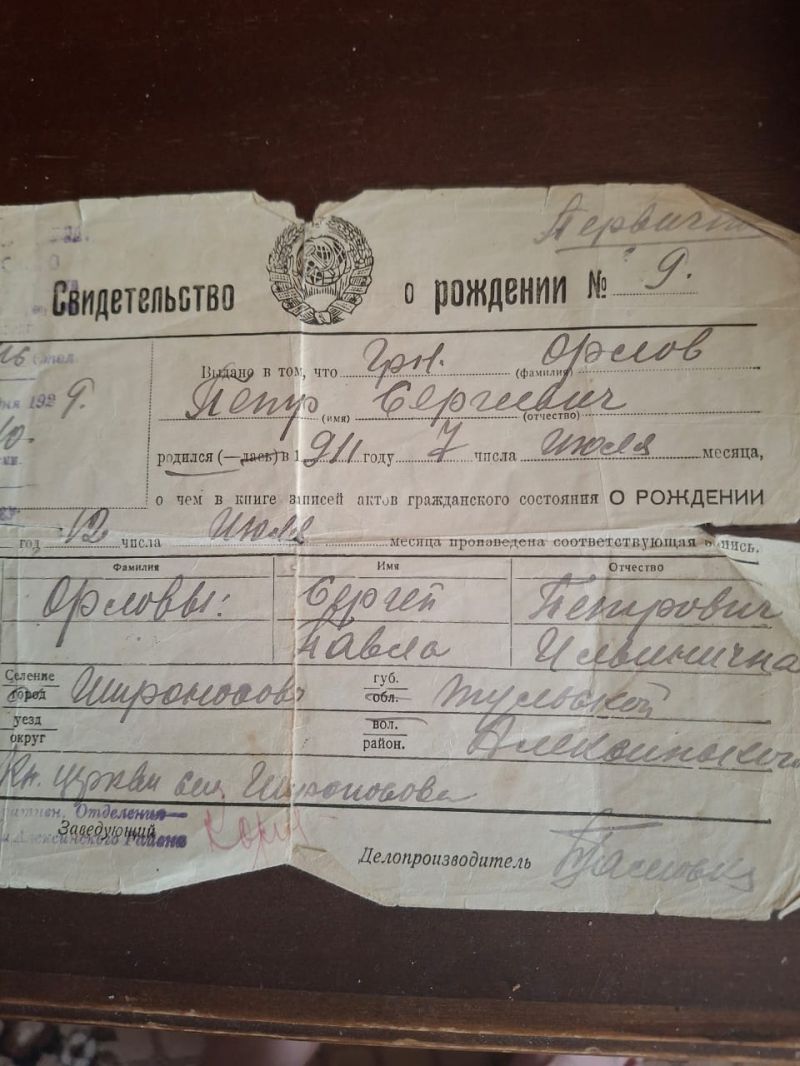 Первичн
Свидетельство о рождении № 9.
Выдано в том, что Грн. Орлов
(фамилия)
Петр Сергеевич
(имя) (отчество)
родился (—лась) в 1911 году 7 числа Июля месяца,
о чем в книге записей актов гражданского состояния О РОЖДЕНИИ
год 12 числа Июля месяца произведена соответствующая запись.
Фамилия Имя Отчество
Орловы: Сергей Петрович
Павла Ильинична
Селение город Широносово губ. обл. Тульской
уезд округ вол. район. Алексинского
Кн. церкви села Широносова
Отделения
Заведующий
Алексинского Района
Делопроизводитель